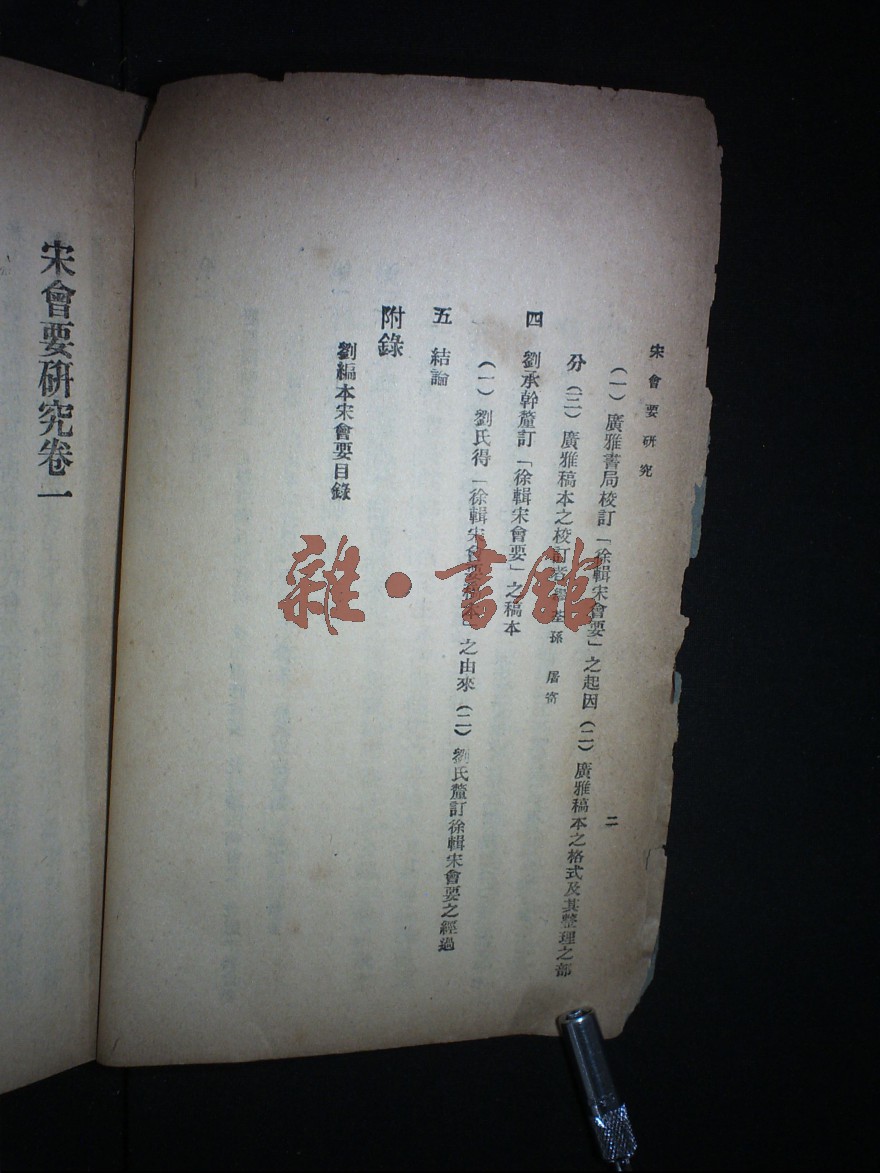 宋會要研究
二
（一）廣雅書局校訂「徐輯宋會要」之起因（二）廣雅稿本之格式及其整理之部
分（三）廣雅稿本之校訂者繆荃孫　屠寄
四　劉承幹釐訂「徐輯宋會要」之稿本
（一）劉氏得「徐輯宋會要稿本」之由來（二）劉氏釐訂徐輯宋會要之經過
五　結論
附錄
劉編本宋會要目錄
宋會要研究卷一
雜·書館